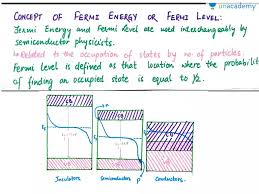 unacademy
CONCEPT OF FERMI ENERGY OR FERMI LEVEL:
Fermi Energy and Fermi Level are used interchangeably by
semiconductor physicists.
Related to the occupation of states by no. of particles.
Fermi level is defined as that location where the probability
of finding an occupied state is equal to ½.
Insulators
Semiconductors
Conductors